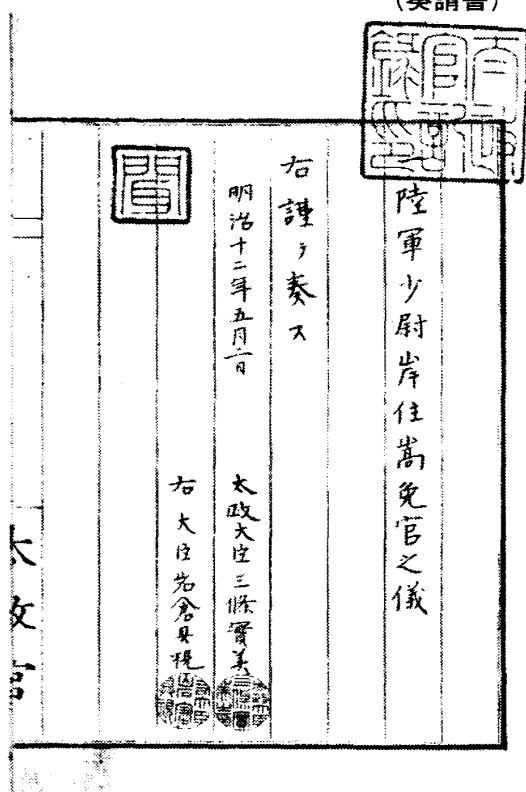 (奏請書)
太政官記録印
陸軍少尉岸住嵩免官之儀
右謹テ奏ス
明治十二年五月二日
太政大臣三條實美
右大臣岩倉具視
聞
太政官